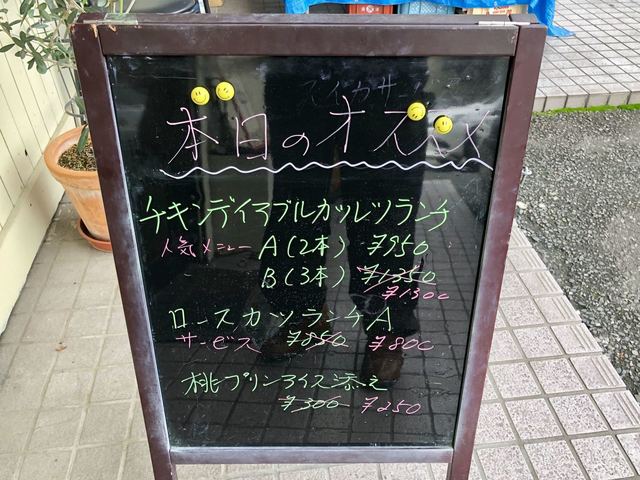 本日のオススメ
チキンディアブルカツレツランチ
人気メニュー A(2本) ¥950
B(3本) ¥1350
¥1300
ロースカツランチA
サービス ¥850 ¥800
桃プリンアイス添え
¥300 ¥250